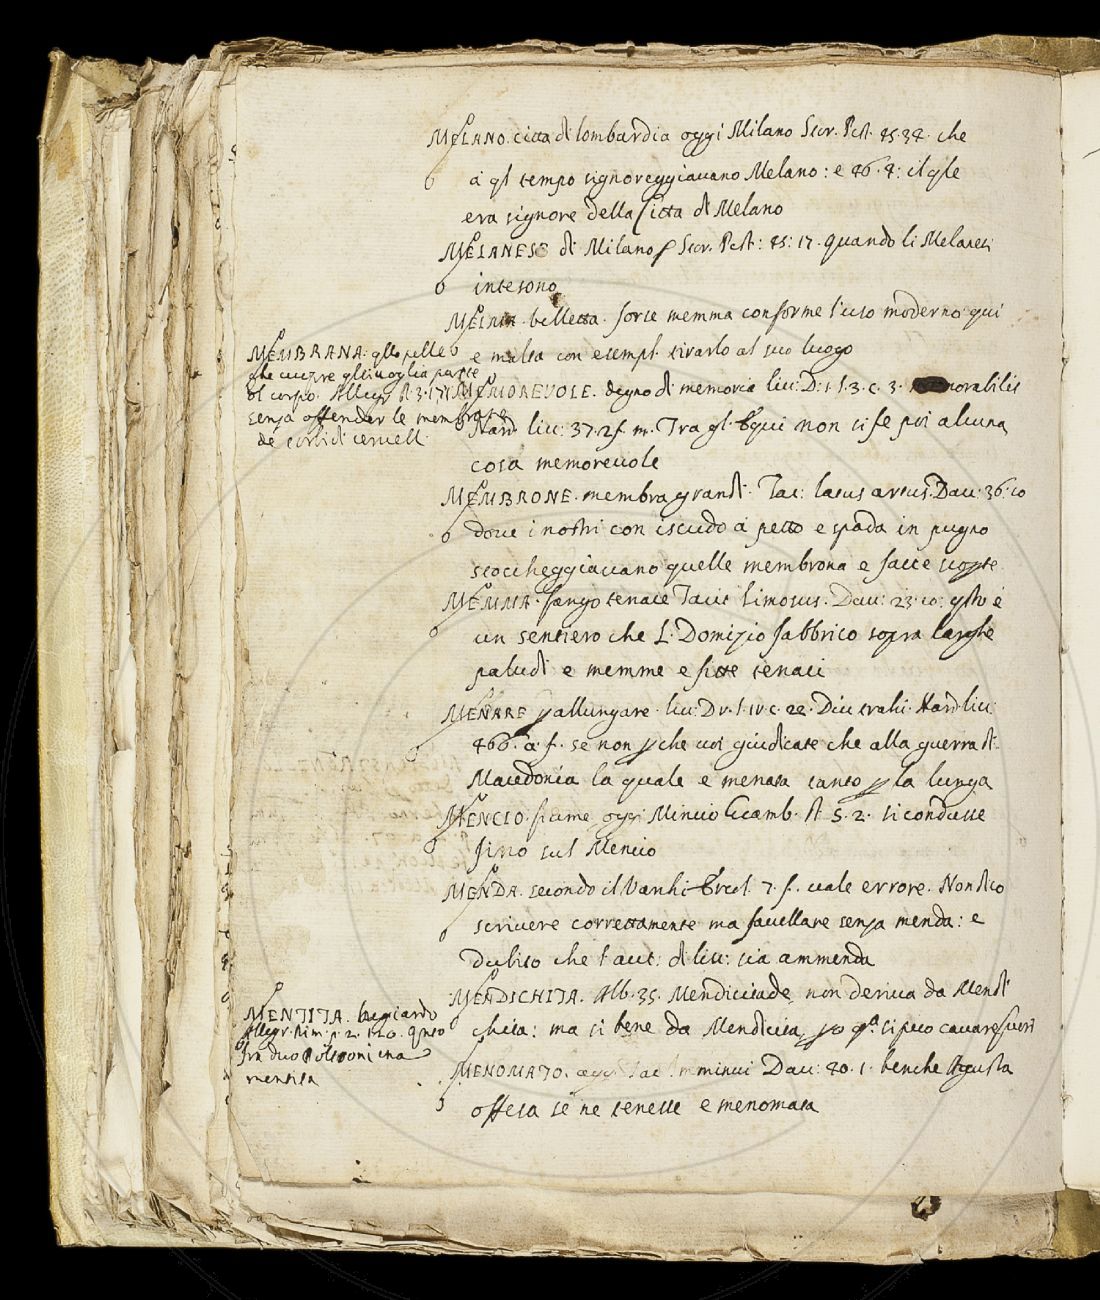 MELANO. citta di lombardia oggi Milano Stor. Pist. 45.34. che
à ql tempo signoreggiavano Melano: e 46.4: il qle
era signore della Citta di Melano
MELANESE di Milano Stor. Pist: 45: 17. quando li Melanesi
intesono
belletta. forse memma conforme l'uso moderno qui
e malta con esempl. tirarlo al suo luogo
MEMBRANA. qlla pelle
che cuopre qlsivoglia parte
del corpo. Allegr. 3. 171
senza offender le membrane
de cervell.
MEMOREVOLE. degno di memoria liv: D: 1. l. 3. c. 3. memorabilis
Nard. liv: 37. 2. f. m. Tra gl. Equi non si fe poi alcuna
cosa memorevole
MEMBRONE. membra grandi. Tac: latus artus. Dav: 36: 10
dove i nostri con iscudo à petto e spada in pugno
stoccheggiavano quelle membrona e facce
MEMMA. fango tenace Tacit limosus. Dav: 23: 10: qsto é
un sentiero che L. Domizio fabbrico sopra larghe
paludi e memme e fitte tenaci
MENARE p allungare. liv: D v. l. iv c. 22. Diu trahi. Nard liv:
466. à. f. se non p che voi giudicate che alla guerra di
Macedonia la quale e menata tanto p la lunga
MENCIO. fiume oggi Mincio Giamb. St 5. 2. si condusse
fino sul Mencio
MENDA. secondo il Varchi Ercol. 7. f. vale errore. Non dico
scrivere correttamente ma favellare senza menda: e
dubito che l aut: di liv: sia ammenda
MENDICHITA. Alb. 35. Mendicitade non deriva da Mendi
chità: ma si bene da Mendicita,
MENTITA. bugiardo
Allegr. Rim: p. 2. 120. qnto
fra duo Poltroni una
mentita
MENOMATO. Imminui Dav: 40. 1. benche Agusta
offesa se ne tenesse e menomata